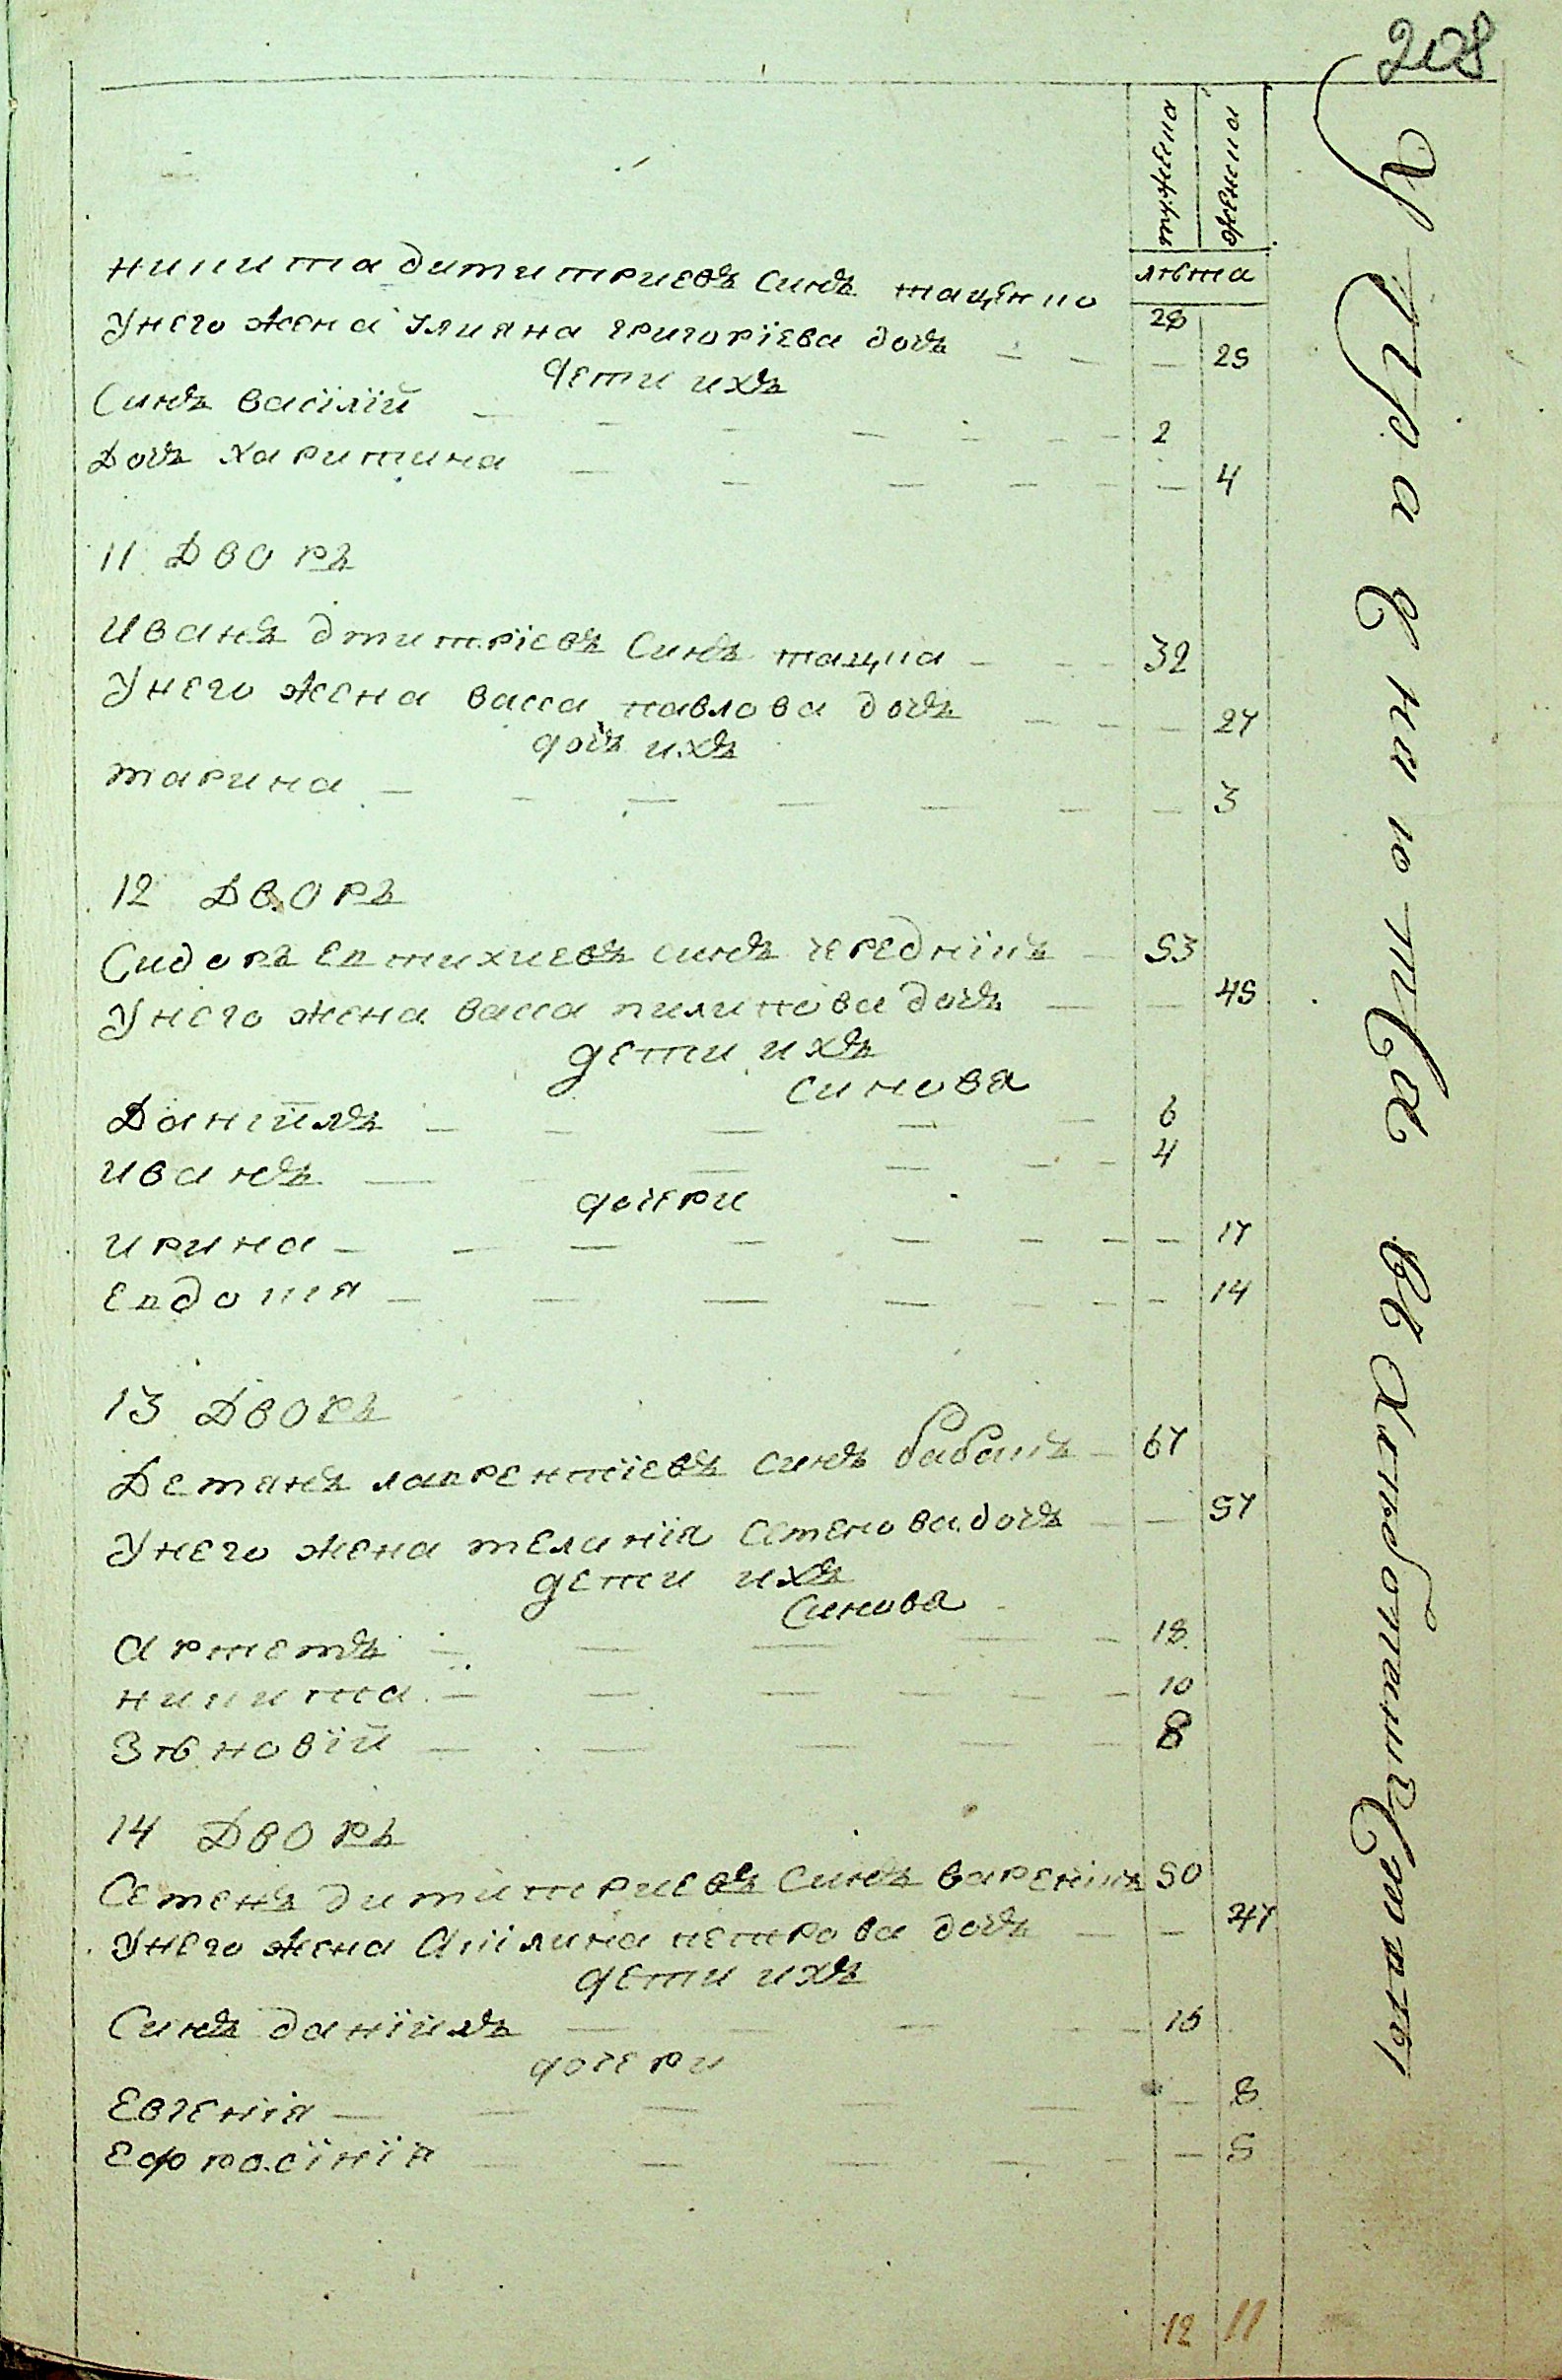 208
мужеска
женска
лѣта
никита димитриевъ синъ маценко 28
Унего жена Улияна григорїева дочъ — — — 25
дети ихъ
Синъ васїлїй — — — — — — 2
Дочъ харитина — — — — — — 4
11 Дворъ
Иванъ дмитрїевъ синъ мацка — — — 32
Унего жена васса павлова дочъ — — — 27
дочъ ихъ
марина — — — — — — — 3
12 Дворъ
Сидоръ Евтихиевъ синъ череднїкъ — 53
Унего жена васса пилипова дочъ — — 45
дети ихъ
синовя
Данїилъ — — — — — 6
иванъ — — — — — 4
дочери
ирина — — — — — — — — 17
Евдокия — — — — — — — 14
13 Дворъ
Демянъ лаврентїевъ синъ бабакъ — 67
Унего жена меланїя семенова дочъ — — 57
дети ихъ
Синовя
Артемъ — — — — — 18
никита — — — — — — 10
Зѣновїй — — — — — 8
14 Дворъ
Семенъ димитриевъ синъ варенїкъ 50
Унего жена Акилина петрова дочъ — — 47
дети ихъ
Синъ данїилъ — — — — — 16
дочери
Евгенїя — — — — — — 8
Ефросїнїя — — — — — — 5
12 11